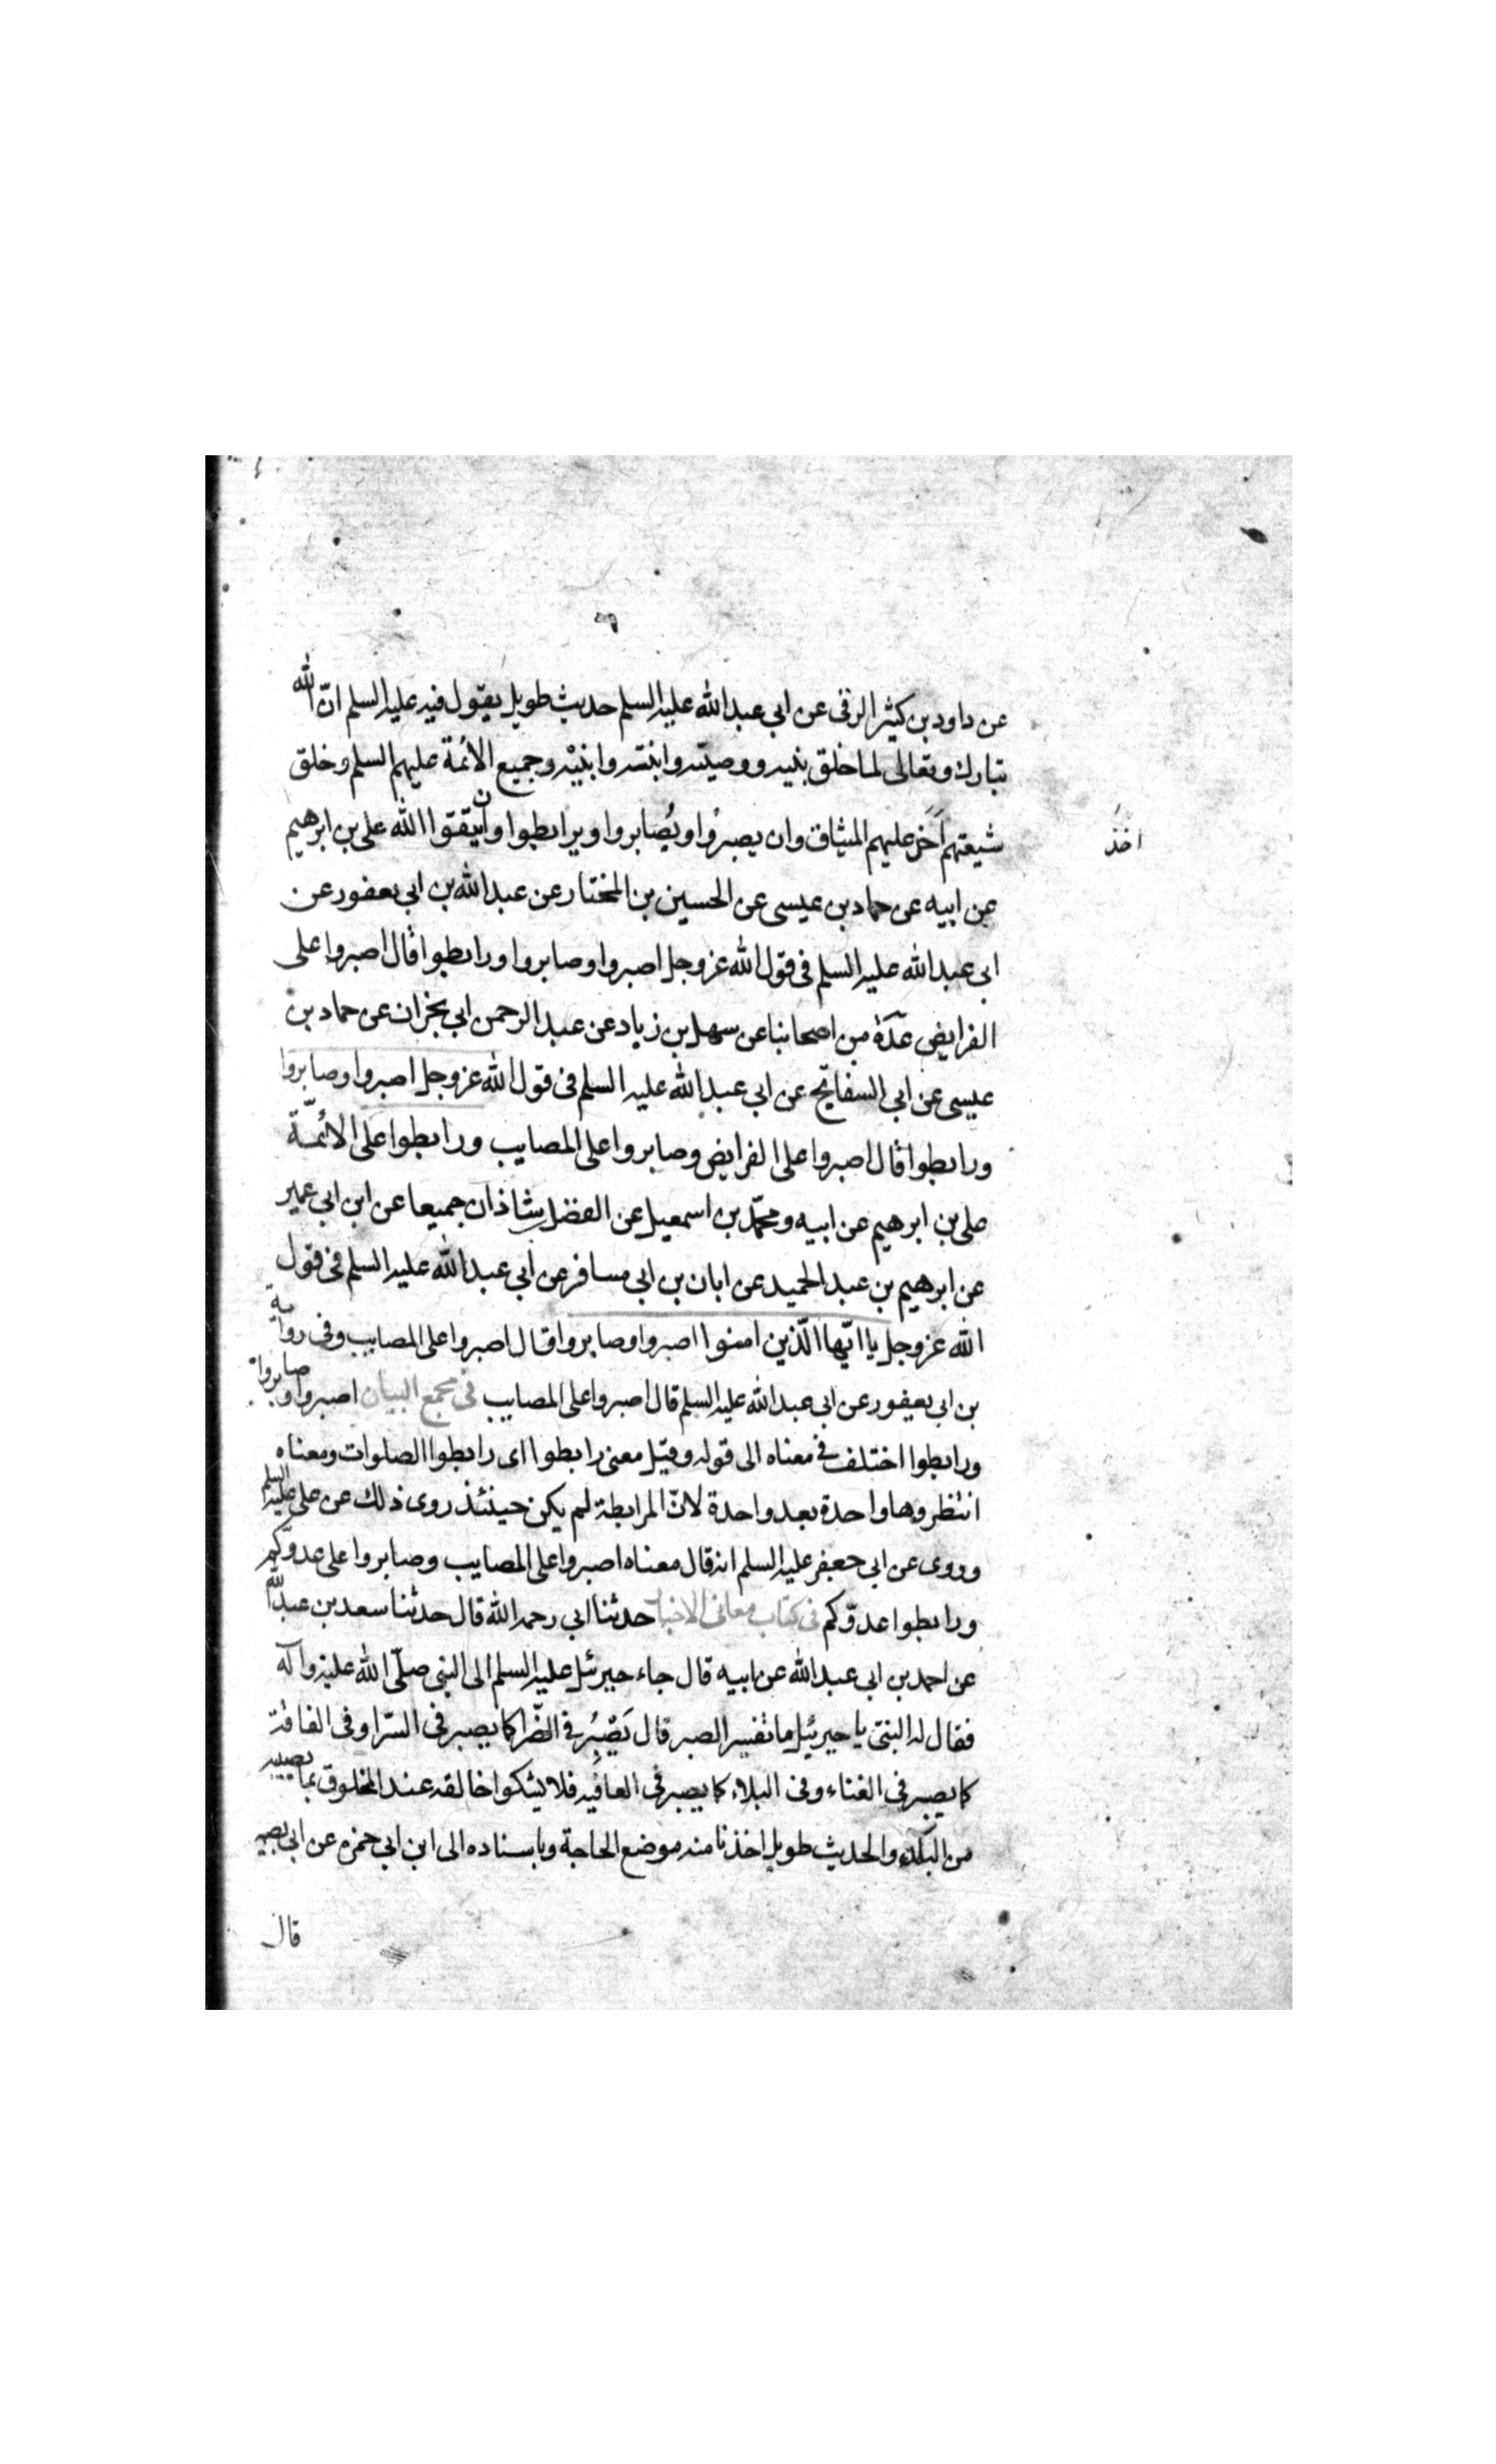 عن داود بن كثير الرقى عن ابى عبد الله عليه السلم حديث طويل يقول فيه عليه السلم انّ الله
تبارك وتعالى لما خلق نبيه ووصيّه وابنته وابنيْه وجميع الائمة عليهم السلم وخلق
شيعتهم اخذ عليهم الميثاق وان يصبرُوا ويُصابروا ويرابطوا وان يتقوا الله على بن ابرهيم
اخذ
عن ابيه عن حماد بن عيسى عن الحسين بن المختار عن عبد الله بن ابى يعفور عن
ابى عبد الله عليه السلم فى قول الله عز وجل اصبروا وصابروا ورابطوا قال اصبروا على
الفرايض عدّة من اصحابنا عن سهل بن زياد عن عبد الرحمن ابى نجران عن حماد بن
عيسى عن ابى السفاتج عن ابى عبد الله عليه السلم فى قول الله عز وجل اصبروا وصابروا
ورابطوا قال اصبروا على الفرايض وصابروا على المصايب ورابطوا على الائمّة
على بن ابرهيم عن ابيه ومحمّد بن اسمعيل عن الفضل بن شاذان جميعا عن ابن ابى عمير
عن ابرهيم بن عبد الحميد عن ابان بن ابى مسافر عن ابى عبد الله عليه السلم فى قول
الله عز وجل يا ايّها الّذين امنوا اصبروا وصابروا قال اصبروا على المصايب وفى رواية
بن ابى يعفور عن ابى عبد الله عليه السلم قال اصبروا على المصايب فى مجمع البيان اصبروا وصابروا
ورابطوا اختلف فى معناه الى قوله وقيل معنى رابطوا اى رابطوا الصلوات ومعناه
انتظروها واحدة بعد واحدة لانّ المرابطة لم يكن حينئذ روى ذلك عن على عليه السلم
وروى عن ابى جعفر عليه السلم انه قال معناه اصبروا على المصايب وصابروا على عدوّكم
ورابطوا عدوّكم فى كتاب معانى الاخبار حدثنا ابى رحمه الله قال حدثنا سعد بن عبد الله
عن احمد بن ابى عبد الله عن ابيه قال جاء جبرئيل عليه السلم الى النبى صلّى الله عليه وآله
فقال له النبىّ يا جبرئيل ما تفسير الصبر قال يَصْبِرُ فى الضّرا كما يصبر فى السّرا وفى الفاقة
كما يصبر فى الغناء وفى البلاء كما يصبر فى العافيه فلا يشكوا خالقه عند المخلوق بما يصيبه
من البلاء والحديث طويل اخذنا منه موضع الحاجة وباسناده الى ابن ابى حمزه عن ابى بصير
قال